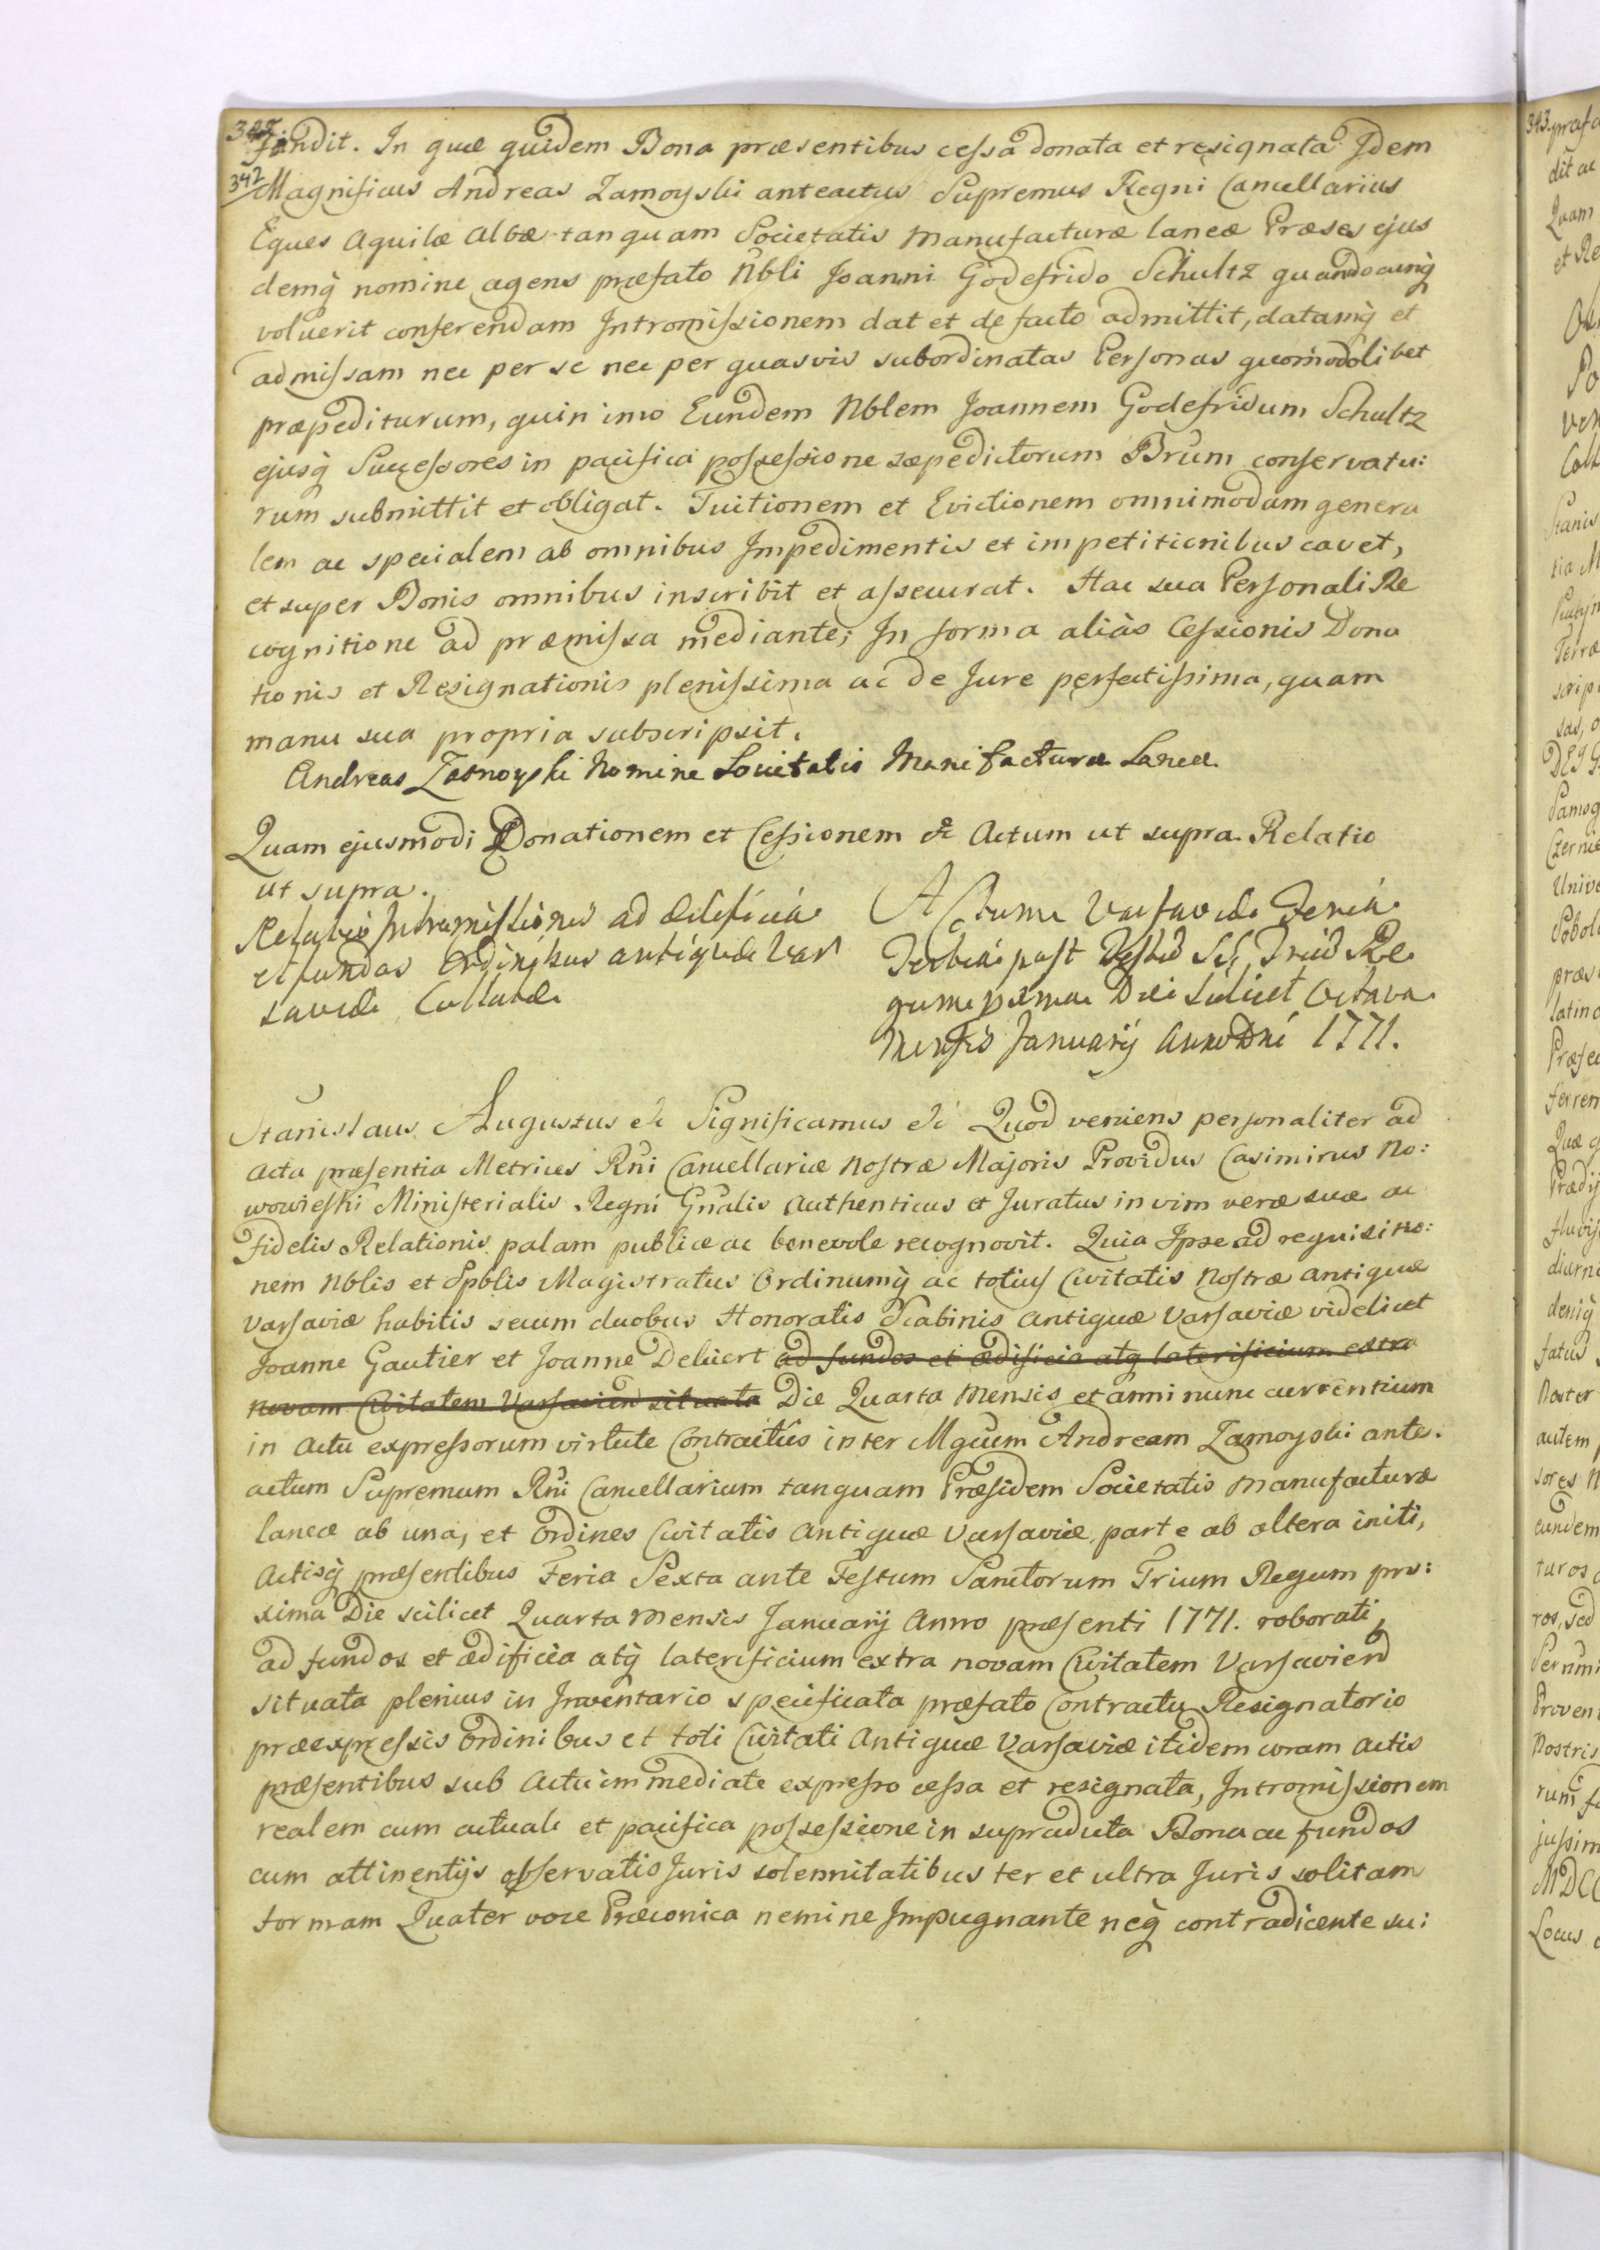 342
fundit. In quæ quidem Bona præsentibus cessa donata et resignata Idem
Magnificus Andreas Zamoyski anteactus Supremus Regni Cancellarius
Eques Aquilæ Albæ tanquam Societatis Manufacturæ laneæ Præses ejus
demq nomine agens præfato Nbli Joanni Godefrido Schultz quandocunq
voluerit conferendam Intromissionem dat et de facto admittit, datamq et
admissam nec per se nec per quasvis subordinatas Personas quomodolibet
præpediturum, quin imo Eundem Nblem Joannem Godefridum Schultz
ejusq Successores in pacifica possessione sæpedictorum Brum conservatu:
rum submittit et obligat. Tuitionem et Evictionem omnimodam genera
lem ac specialem ab omnibus Impedimentis et impetitionibus cavet,
et super Bonis omnibus inscribit et assecurat. Hac sua Personali Re
cognitione ad præmissa mediante; In forma aliàs Cessionis Dona
tionis et Resignationis plenissima ac de Jure perfectissima, quam
manu sua propria subscripsit.
Andreas Zamoyski Nomine Societatis Manifacturæ Laneæ
Quam ejusmodi Donationem et Cessionem &c Actum ut supra. Relatio
ut supra.
Relatio Intromissionis ad ædificia
et fundos Ordinibus antiquæ Var
saviæ Collatæ
Actum Varsaviæ Feria
Tertia post Festum SS. Trium Re
gum pxma Die scilicet Octava
Mensis Januarij Anno Dni 1771.
Stanislaus Augustus &c Significamus &c Quod veniens personaliter ad
Acta præsentia Metrices Rni Cancellariæ Nostræ Majoris Providus Casimirus No:
wowieski Ministerialis Regni Gnalis Authenticus et Juratus in vim veræ suæ ac
Fidelis Relationis palam publice ac benevole recognovit. Quia Ipse ad requisitio:
nem Nblis et Spblis Magistratus Ordinumq ac totius Civitatis Nostræ antiquæ
Varsaviæ habitis secum duobus Honoratis Scabinis Antiquæ Varsaviæ videlicet
Joanne Gautier et Joanne Delüert ad fundos et ædificia atq laterificium extra
novam Civitatem Varsavien situata Die Quarta Mensis et anni nunc currentium
in Actu expressorum virtute Contractûs inter Mgcum Andream Zamoyski ante:
actum Supremum Rni Cancellarium tanquam Præsidem Societatis Manufacturæ
laneæ ab una, et Ordines Civitatis Antiquæ Varsaviæ parte ab altera initi,
Actisq præsentibus Feria Sexta ante Festum Sanctorum Trium Regum pro:
xima Die scilicet Quarta Mensis Januarij Anno præsenti 1771. roborati,
ad fundos et ædificia atq laterificium extra novam Civitatem Varsavien
situata plenius in Inventario specificata præfato Contractu Resignatorio
præexpressis Ordinibus et toti Civitati Antiquæ Varsaviæ itidem coram Actis
præsentibus sub Actu immediate expresso cessa et resignata, Intromissionem
realem cum actuali et pacifica possessione in supradicta Bona ac fundos
cum attinentijs observatis Juris solennitatibus ter et ultra Juris solitam
formam Quater voce Præconica nemine Impugnante neq contradicente su: